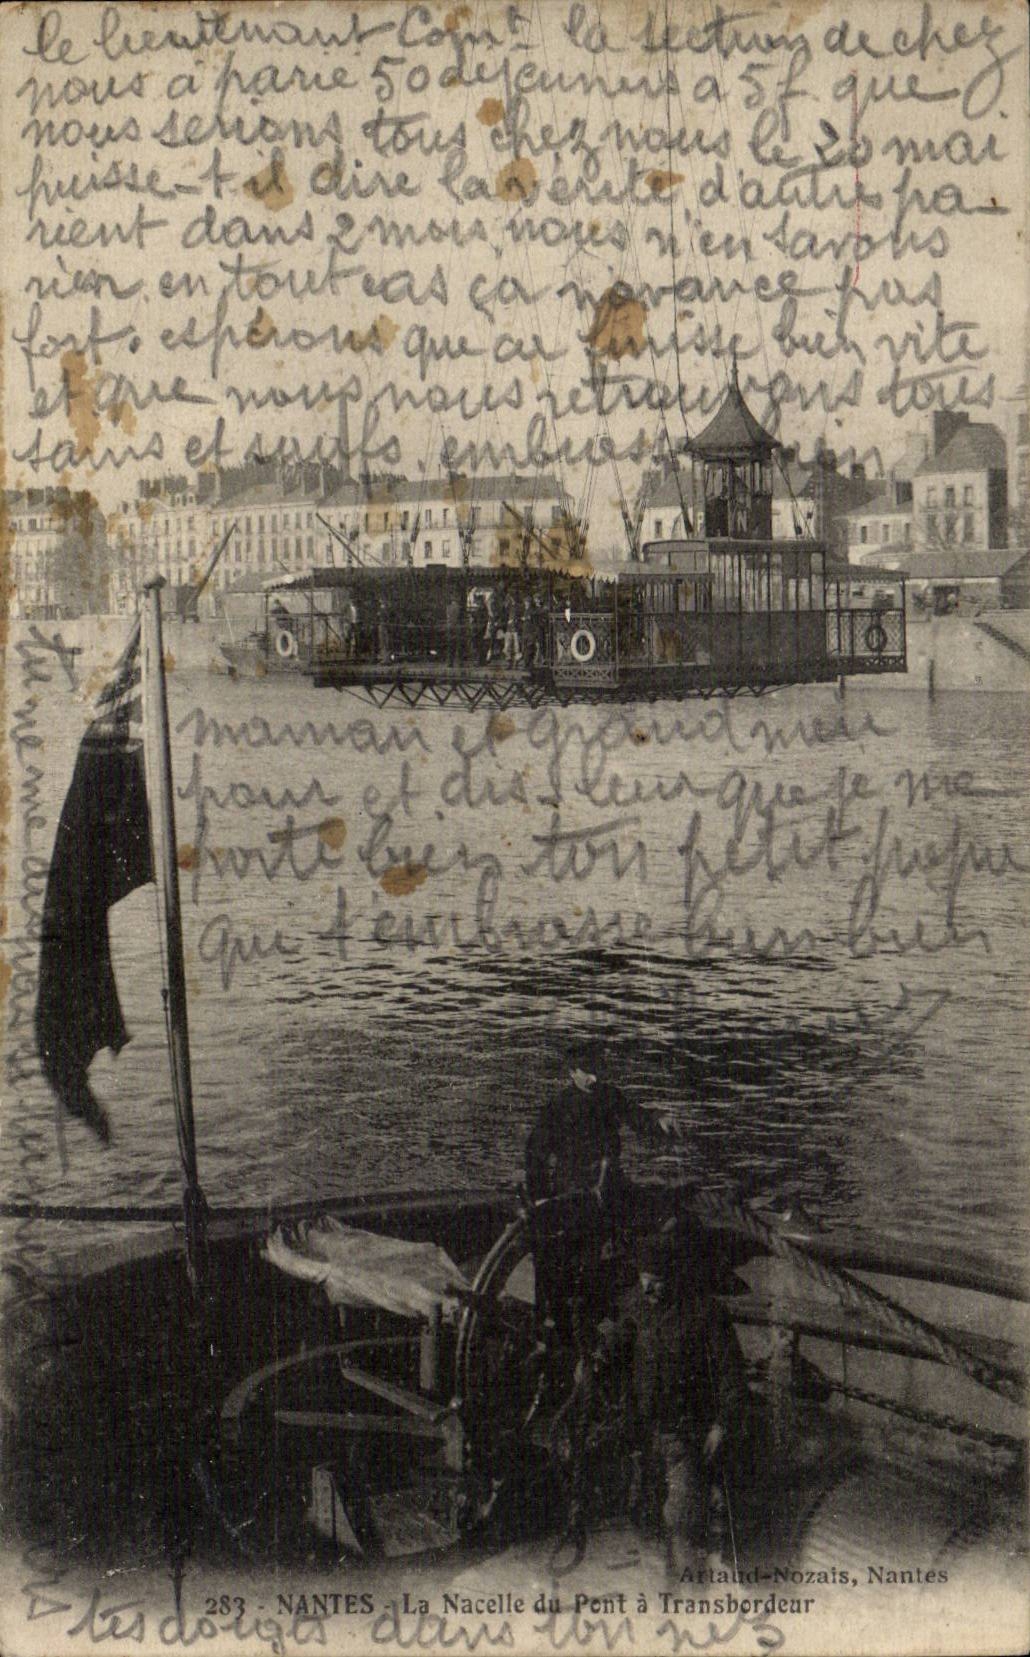 le lieutenant Comt la section de chez
nous a parié 50 dejeuners a 5f que
nous serions tous chez nous le 20 mai
puisse-t il dire la vérité d'autres pa-
rient dans 2 mois, nous n'en savons
rien, en tout cas ça n'avance pas
fort. espérons que ça finisse bien vite
et que nous nous retrouvons tous
sains et saufs. embrasse bien
maman et grand
pour et dis-leur que je me
porte bien ton petit papa
qui t'embrasse bien bien
tes doigts dans ton nez
Artaud-Nozais, Nantes
283 - NANTES - La Nacelle du Pont à Transbordeur
N